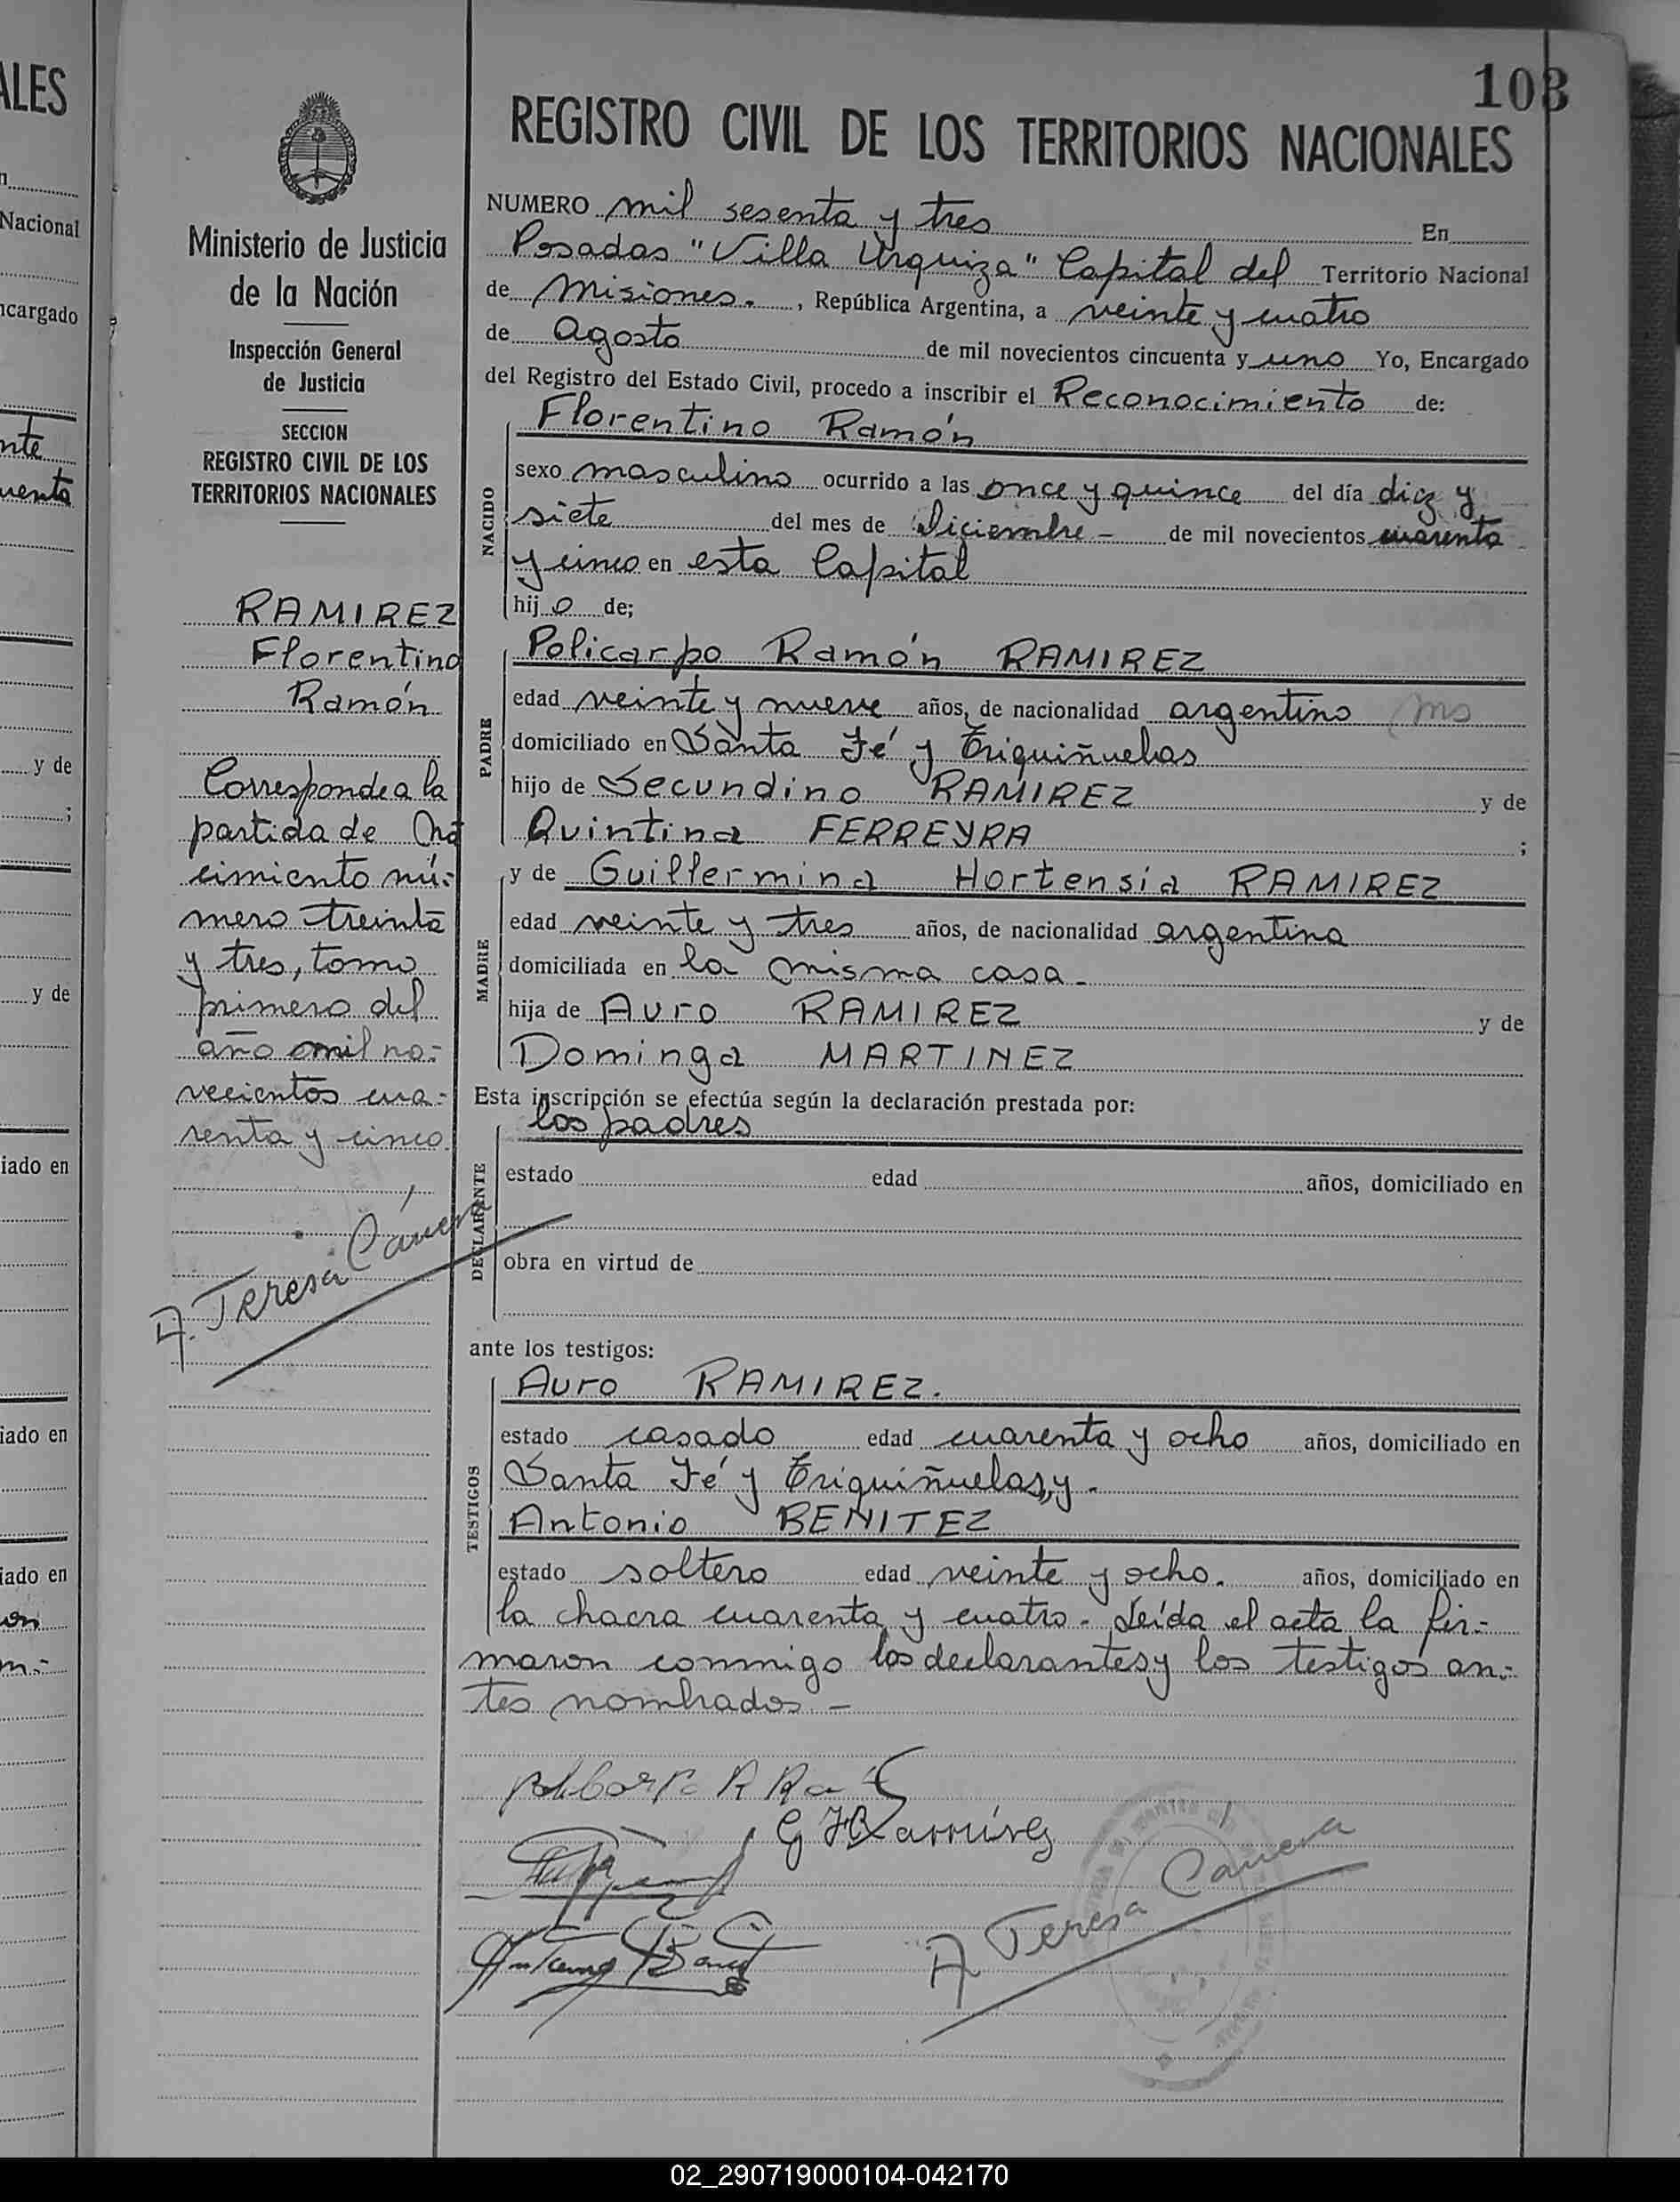 ALES
n
Nacional
ncargado
nte
uenta
y de
;
y de
iado en
iado en
iado en
on
m.-
103
Ministerio de Justicia
de la Nación
Inspección General
de Justicia
SECCION
REGISTRO CIVIL DE LOS
TERRITORIOS NACIONALES
RAMIREZ
Florentino
Ramón
Corresponde a la
partida de Na
cimiento nú-
mero treinta
y tres, tomo
primero del
año mil no-
vecientos cua-
renta y cinco
A. Teresa Cánera
REGISTRO CIVIL DE LOS TERRITORIOS NACIONALES
NUMERO mil sesenta y tres En
Posadas "Villa Urquiza" Capital del Territorio Nacional
de Misiones. , República Argentina, a veinte y cuatro
de Agosto de mil novecientos cincuenta y uno Yo, Encargado
del Registro del Estado Civil, procedo a inscribir el Reconocimiento de:
NACIDO
Florentino Ramón
sexo masculino ocurrido a las once y quince del día diez y
siete del mes de Diciembre - de mil novecientos cuarenta
y cinco en esta Capital
hijo de;
PADRE
Policarpo Ramón RAMIREZ
edad veinte y nueve años, de nacionalidad argentino
domiciliado en Santa Fé y Triquiñuelas
hijo de Secundino RAMIREZ y de
Quintina FERREYRA ;
MADRE
y de Guillermina Hortensia RAMIREZ
edad veinte y tres años, de nacionalidad argentina
domiciliada en la misma casa -
hija de Auro RAMIREZ y de
Dominga MARTINEZ
Esta inscripción se efectúa según la declaración prestada por:
DECLARANTE
los padres
estado edad años, domiciliado en
obra en virtud de
ante los testigos:
TESTIGOS
Auro RAMIREZ.
estado casado edad cuarenta y ocho años, domiciliado en
Santa Fé y Triquiñuelas, y -
Antonio BENITEZ
estado soltero edad veinte y ocho. años, domiciliado en
la chacra cuarenta y cuatro - Leída el acta la fir-
maron conmigo los declarantes y los testigos an-
tes nombrados -
G H Ramírez
A Teresa Canera
02_290719000104-042170